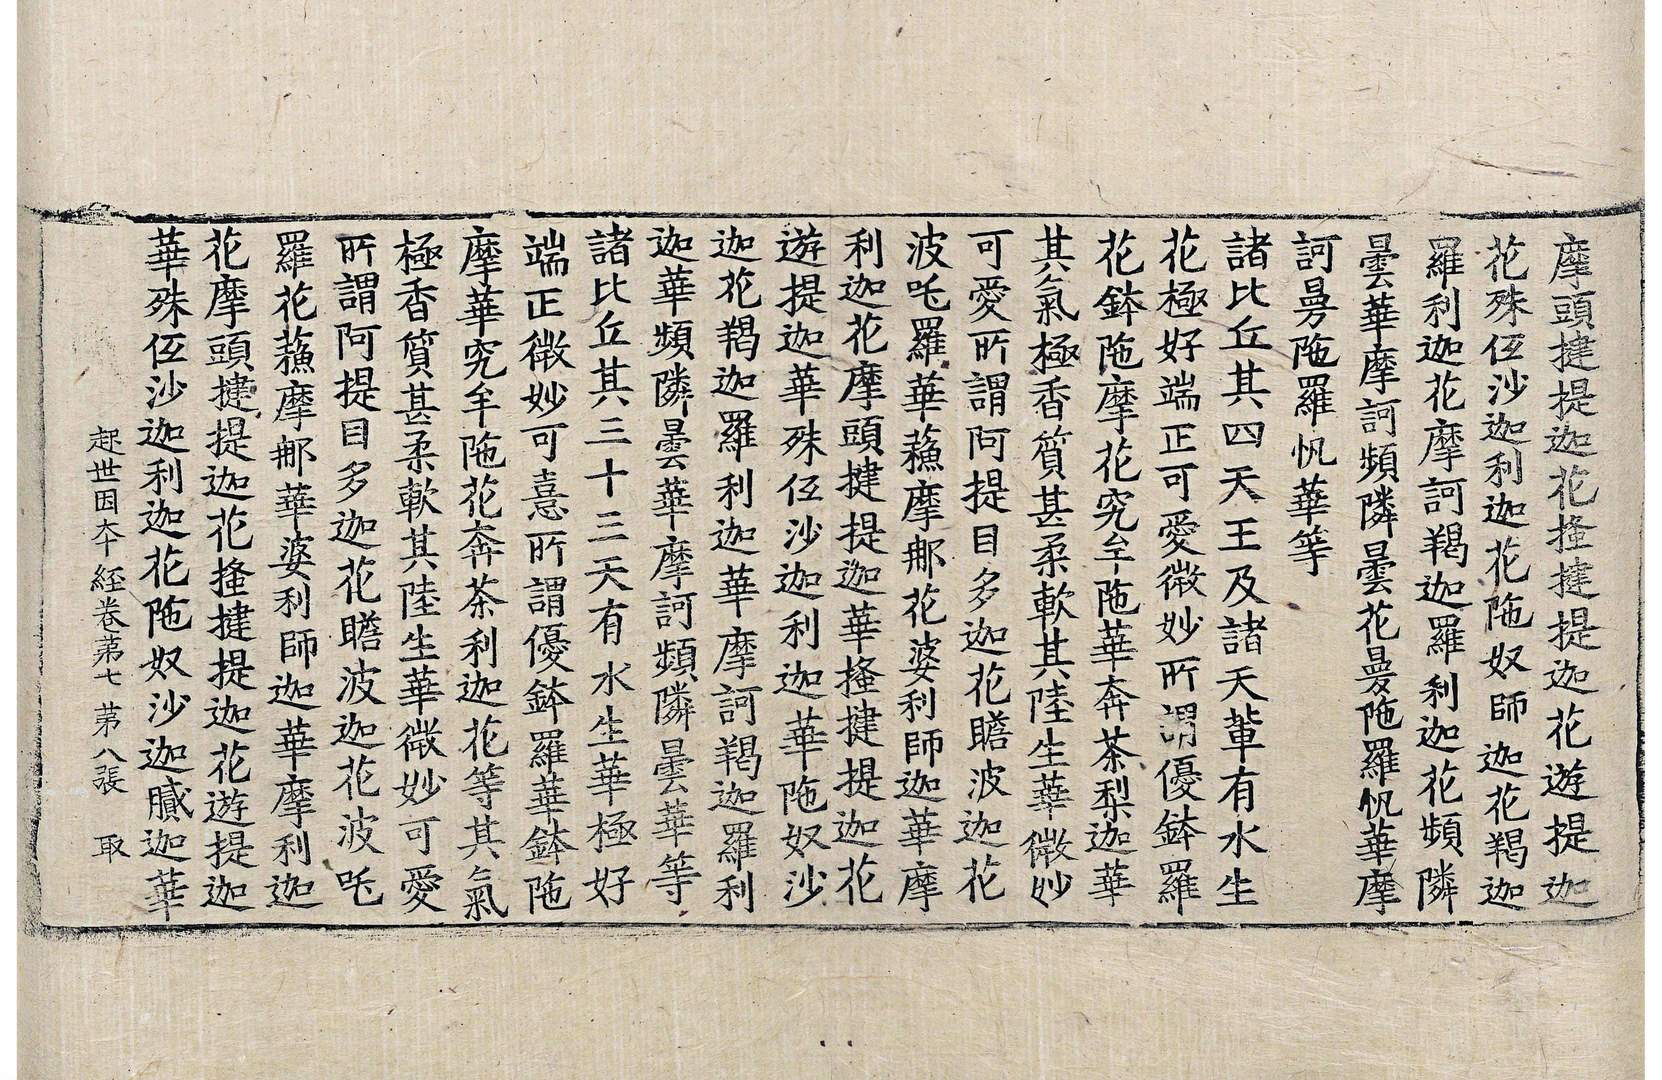 摩頭揵提迦花搔揵提迦花遊提迦
花殊伍沙迦利迦花陁奴師迦花羯迦
羅利迦花摩訶羯迦羅利迦花頻隣
曇華摩訶頻隣曇花曼陁羅帆華摩
訶曼陁羅帆華等
諸比丘其四天王及諸天輩有水生
花極好端正可愛微妙所謂優鉢羅
花鉢陁摩花究牟陁華奔茶梨迦華
其氣極香質甚柔軟其陸生華微妙
可愛所謂阿提目多迦花瞻波迦花
波吒羅華蘓摩那花婆利師迦華摩
利迦花摩頭揵提迦華搔揵提迦花
遊提迦華殊伍沙迦利迦華陁奴沙
迦花羯迦羅利迦華摩訶羯迦羅利
迦華頻隣曇華摩訶頻隣曇華等
諸比丘其三十三天有水生華極好
端正微妙可憙所謂優鉢羅華鉢陁
摩華究牟陁花奔茶利迦花等其氣
極香質甚柔軟其陸生華微妙可愛
所謂阿提目多迦花瞻波迦花波吒
羅花蘓摩那華婆利師迦華摩利迦
花摩頭揵提迦花搔揵提迦花遊提迦
華殊伍沙迦利迦花陁奴沙迦膩迦華
起世因夲經卷苐七 苐八張 取